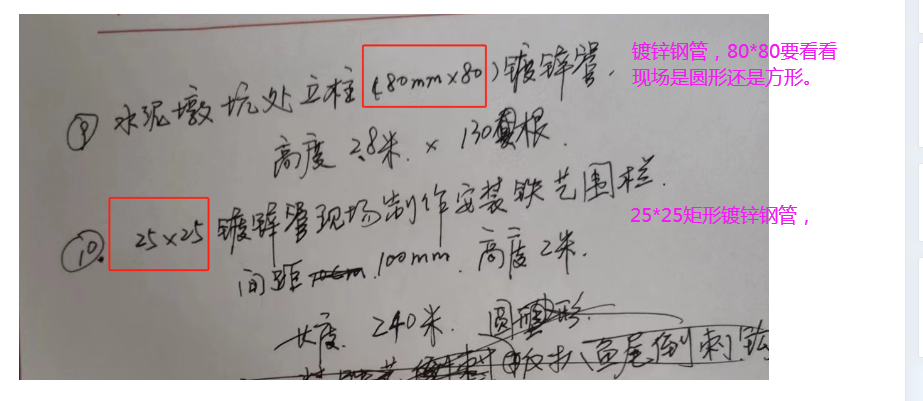 镀锌钢管，80*80要看看
现场是圆形还是方形。
⑨ 水泥墩坑处立柱(80mm×80)镀锌管.
高度 2.8米. × 130根.
25*25矩形镀锌钢管，
⑩. 25×25 镀锌管现场制作安装铁艺围栏.
间距 100mm. 高度2米.
长度. 240米. 圆
鱼尾倒刺